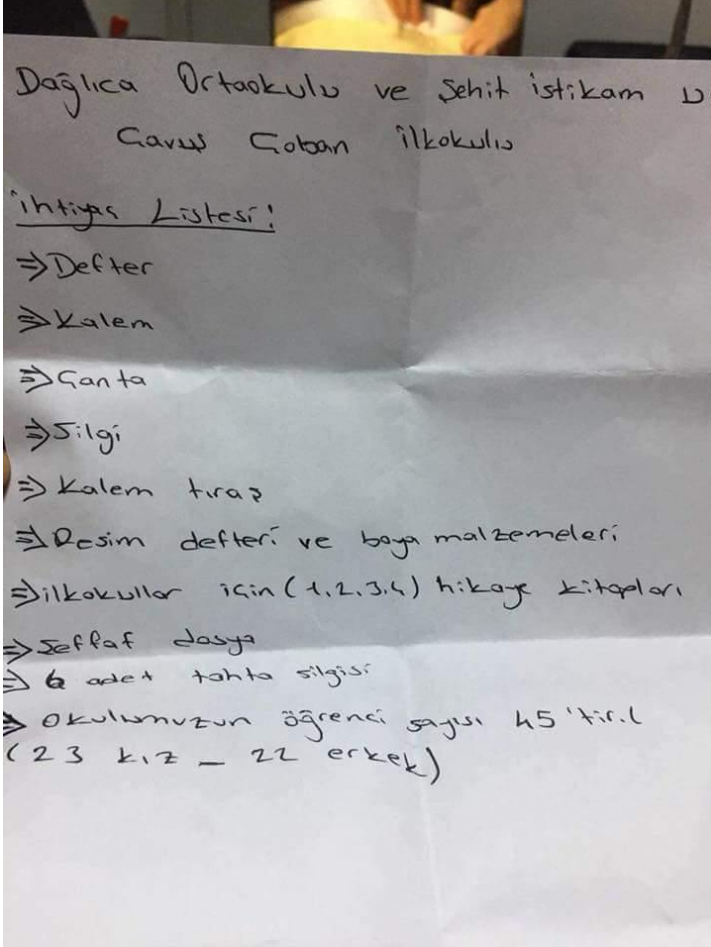 Dağlıca Ortaokulu ve Şehit istikam U
Çavuş Çoban ilkokulu
ihtiyaç Listesi!
⇒Defter
⇒Kalem
⇒Çanta
⇒Silgi
⇒Kalem tıraş
⇒Resim defteri ve boya malzemeleri
⇒ilkokullar için (1.2.3.4) hikaye kitapları
⇒Şeffaf dosya
⇒ 6 adet tahta silgisi
⇒ Okulumuzun öğrenci sayısı 45'tir.(
(23 kız - 22 erkek)